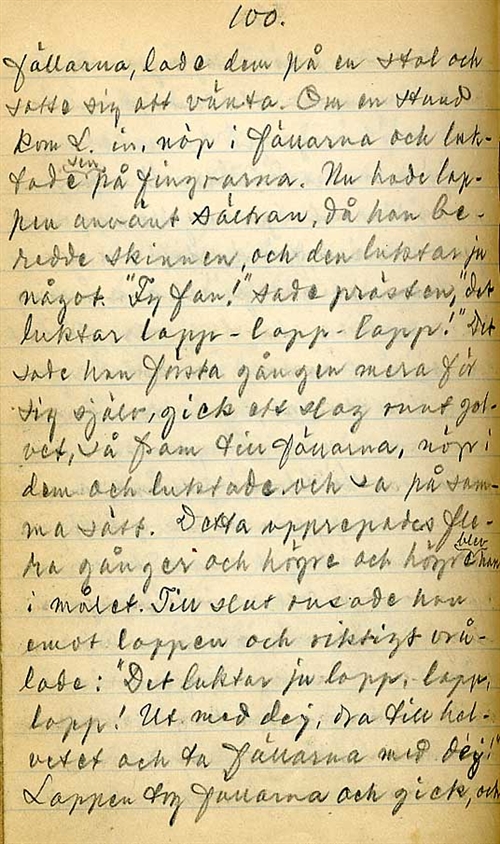 100.
fällarna, lade dem på en stol och
satte sig att vänta. Om en stund
kom L. in, nöp i fällarna och luk-
tade sen på fingrarna. Nu hade lap-
pen använt sältran, då han be-
redde skinnen, och den luktar ju
något. "Fy fan!" sade prästen, "det
luktar lapp - lapp - lapp!" Det
sade han första gången mera för
sig själv, gick ett slag runt gol-
vet, så fram till fällarna, nöp i
dem och luktade och sa på sam-
ma sätt. Detta upprepades fle-
ra gånger och högre och högre blev han
i målet. Till slut rusade han
emot lappen och riktigt vrå-
lade: "Det luktar ju lapp, lapp,
lapp! Ut med dej, dra till hel-
vetet och ta fällarna med dej!"
Lappen tog fällarna och gick, och